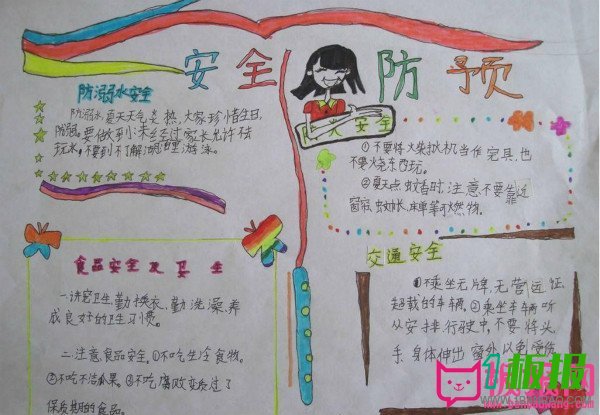 安全预防
防溺水安全
防溺水,夏天天气炎热,大家珍惜生日,
要做到:未经过家长允许禁
玩水,不要到不了解湖里游泳。
火安全
①不要将火柴、扒机当作玩具,也
不要烧东西玩。
②夏天点蚊香时注意不要靠近
窗帘、蚊帐、床单等可燃物。
食品安全及卫生
一.讲究卫生,勤换衣、勤洗澡,养
成良好的卫生习惯。
二.注意食品安全。①不吃生冷食物。
②不吃不洁瓜果。③不吃腐败变质过了
保质期的食品。
交通安全
①不乘坐无牌、无营运证,
超载的车辆。②乘坐车辆听
从安排,行驶中,不要将头、
手、身体伸出窗外,以免受伤
板报